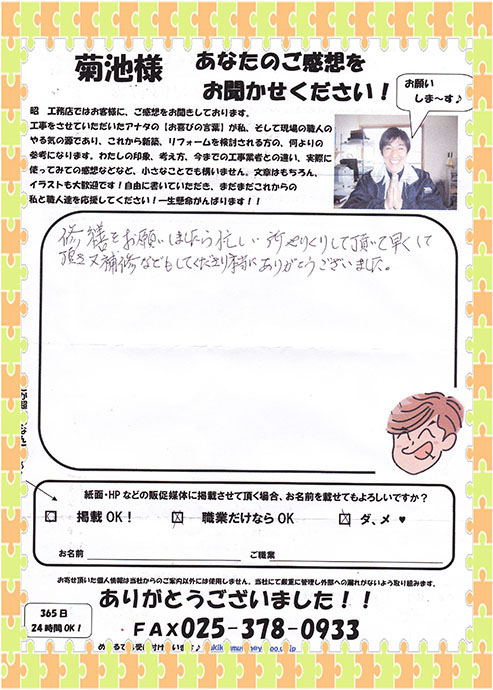 菊池様
あなたのご感想を
お聞かせください!
お願い
しま～す♪
昭 工務店ではお客様に、ご感想をお聞きしております。
工事をさせていただいたアナタの【お喜びの言葉】が私、そして現場の職人の
やる気の源であり、これから新築、リフォームを検討される方の、何よりの
参考になります。わたしの印象、考え方、今までの工事業者との違い、実際に
使ってみての感想などなど、小さなことでも構いません。文章はもちろん、
イラストも大歓迎です!自由に書いていただき、まだまだこれからの
私と職人達を応援してください!一生懸命がんばります!!
修繕をお願いしましたら忙しい所やりくりして頂いて早くして
頂き又補修などもしてくださり本当にありがとうございました。
紙面・HPなどの販促媒体に掲載させて頂く場合、お名前を載せてもよろしいですか?
掲載OK! 職業だけならOK ダ、メ ♥
お名前 ご職業
お寄せ頂いた個人情報は当社からのご案内以外には使用しません。当社にて厳重に管理し外部への漏れがないよう取り組みます。
ありがとうございました!!
365日
24時間OK!
FAX025-378-0933